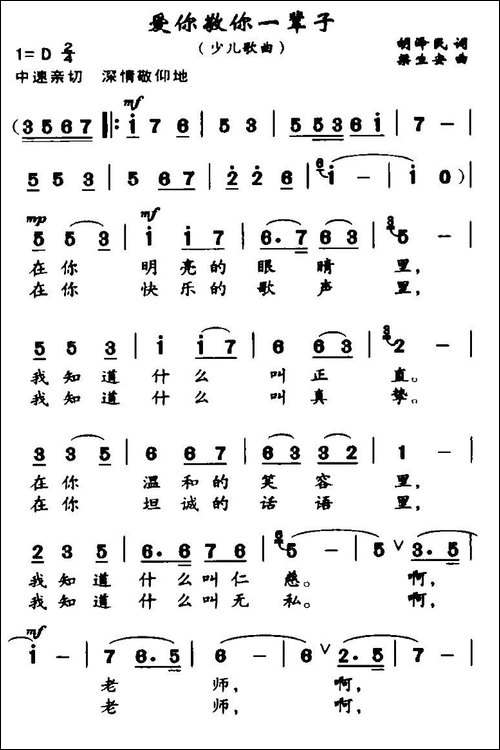 爱你敬你一辈子
(少儿歌曲)
1=D 2/4
胡泽民 词
梁生安 曲
中速亲切 深情敬仰地
mf
(3567 ‖: i 76 | 553 | 5536i | 7 - |
553 | 567 | 226 | 6 i - | i 0) |
mp mf
553 | ii7 | 6·763 | 3 5 - |
在你 明亮的眼睛 里,
在你 快乐的歌声 里,
553 | ii7 | 663 | 3 2 - |
我知道什么 叫正 直。
我知道什么 叫真 挚。
335 | 666 | 6332 | 1 - |
在你 温和的笑容 里,
在你 坦诚的话语 里,
235 | 6·676 | 6 5 - | 5 ∨ 3·5 |
我知道 什么叫仁 慈。 啊,
我知道 什么叫无 私。 啊,
mf
i - | 7 6·5 | 6 - | 6 ∨ 2·5 | 7 - |
老 师, 啊,
老 师, 啊,